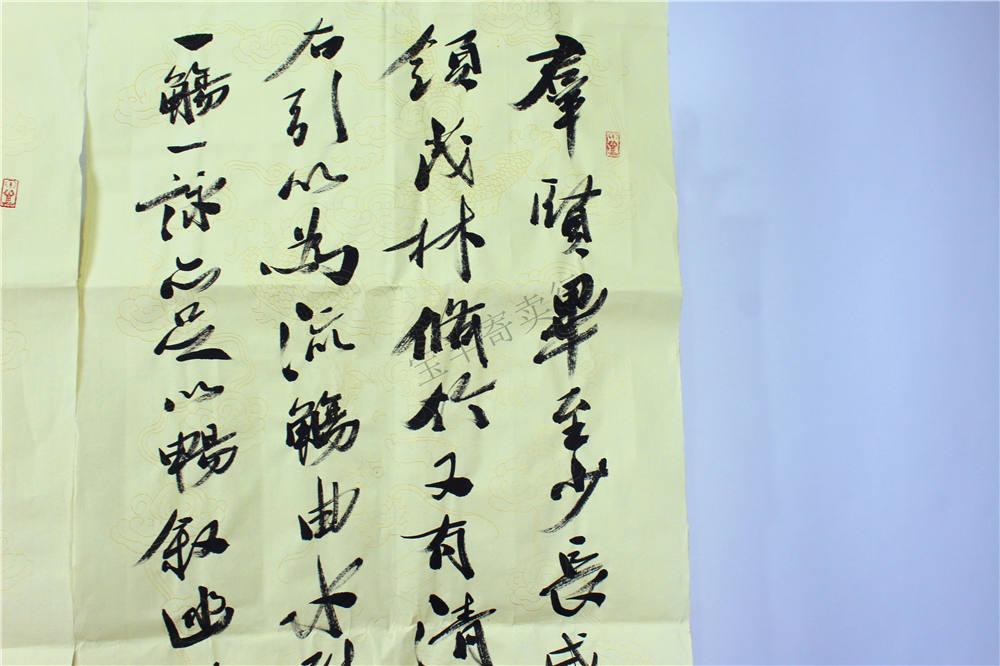 羣賢畢至少長咸
領茂林脩於又有清
右引以為流觴曲水列
一觴一詠亦足以暢叙幽